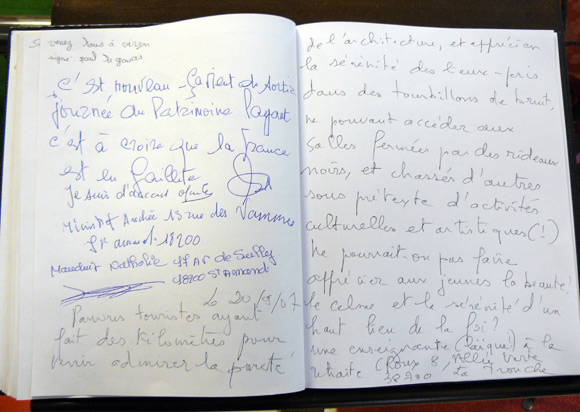 Si venez tous à
signe pour
C'est nouveau - ça vient de sortir
journée du Patrimoine Payant
c'est à croire que la France
est en Faillite
Je suis d'accord
André 13 rue des
St amand. 18200
Nathalie 47 AV de
18200 St Amand
Le 20/9/07
Pauvres touristes ayant
fait des kilomètres pour
venir admirer la pureté
de l'architecture, et apprécier
la sérénité des lieux - pris
dans des tourbillons de bruit,
ne pouvant accéder aux
salles fermées par des rideaux
noirs, et chassés d'autres
sous prétexte d'activités
culturelles et artistiques (!)
Ne pourrait-on pas faire
apprécier aux jeunes la beauté
le calme et la sérénité d'un
haut lieu de la foi?
une enseignante (laïque) à la
retraite (Roux 8, Allée verte
38700 La Tronche